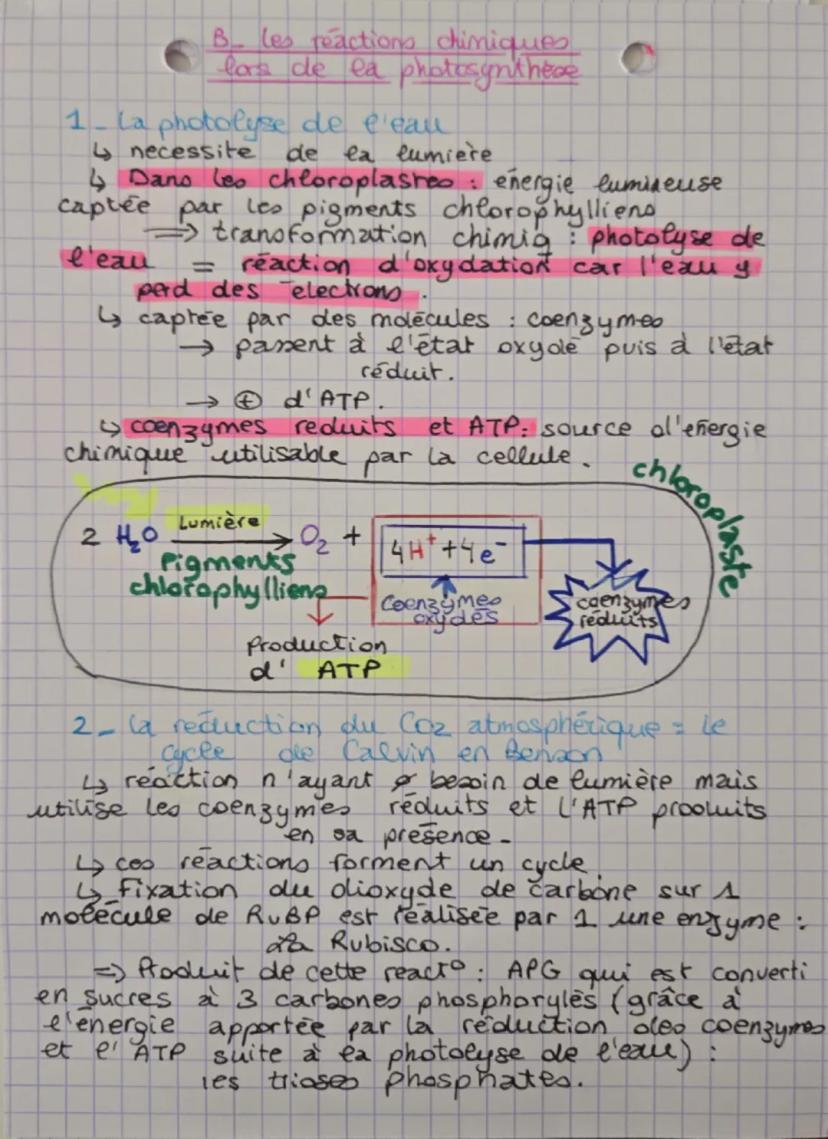 B_ les réactions chimiques
lors de la photosynthèse
1_ La photolyse de l'eau
↳ necessite de la lumière
↳ Dans les chloroplastes : énergie lumineuse
captée par les pigments chlorophylliens
=> transformation chimiq : photolyse de
l'eau = réaction d'oxydation car l'eau y
perd des électrons.
↳ captée par des molécules : coenzymes
→ passent à l'état oxydé puis à l'état
réduit.
→ ⊕ d'ATP.
↳ coenzymes reduits et ATP: source d'énergie
chimique utilisable par la cellule.
chloroplaste
2 H₂O Lumière → O₂ + 4H⁺ + 4e⁻
Pigments
chlorophylliens
Coenzymes
oxydés
coenzymes
réduits
Production
d' ATP
2_ La réduction du CO2 atmosphérique = le
cycle de Calvin en Benson
↳ réaction n'ayant ø besoin de lumière mais
utilise les coenzymes réduits et l'ATP produits
en sa présence_
↳ ces réactions forment un cycle.
↳ Fixation du dioxyde de carbone sur 1
molécule de RuBP est réalisée par 1 une enzyme :
la Rubisco.
=> Produit de cette react° : APG qui est converti
en sucres à 3 carbones phosphorylés (grâce à
l'énergie apportée par la réduction des coenzymes
et l'ATP suite à la photolyse de l'eau) :
les trioses phosphates.